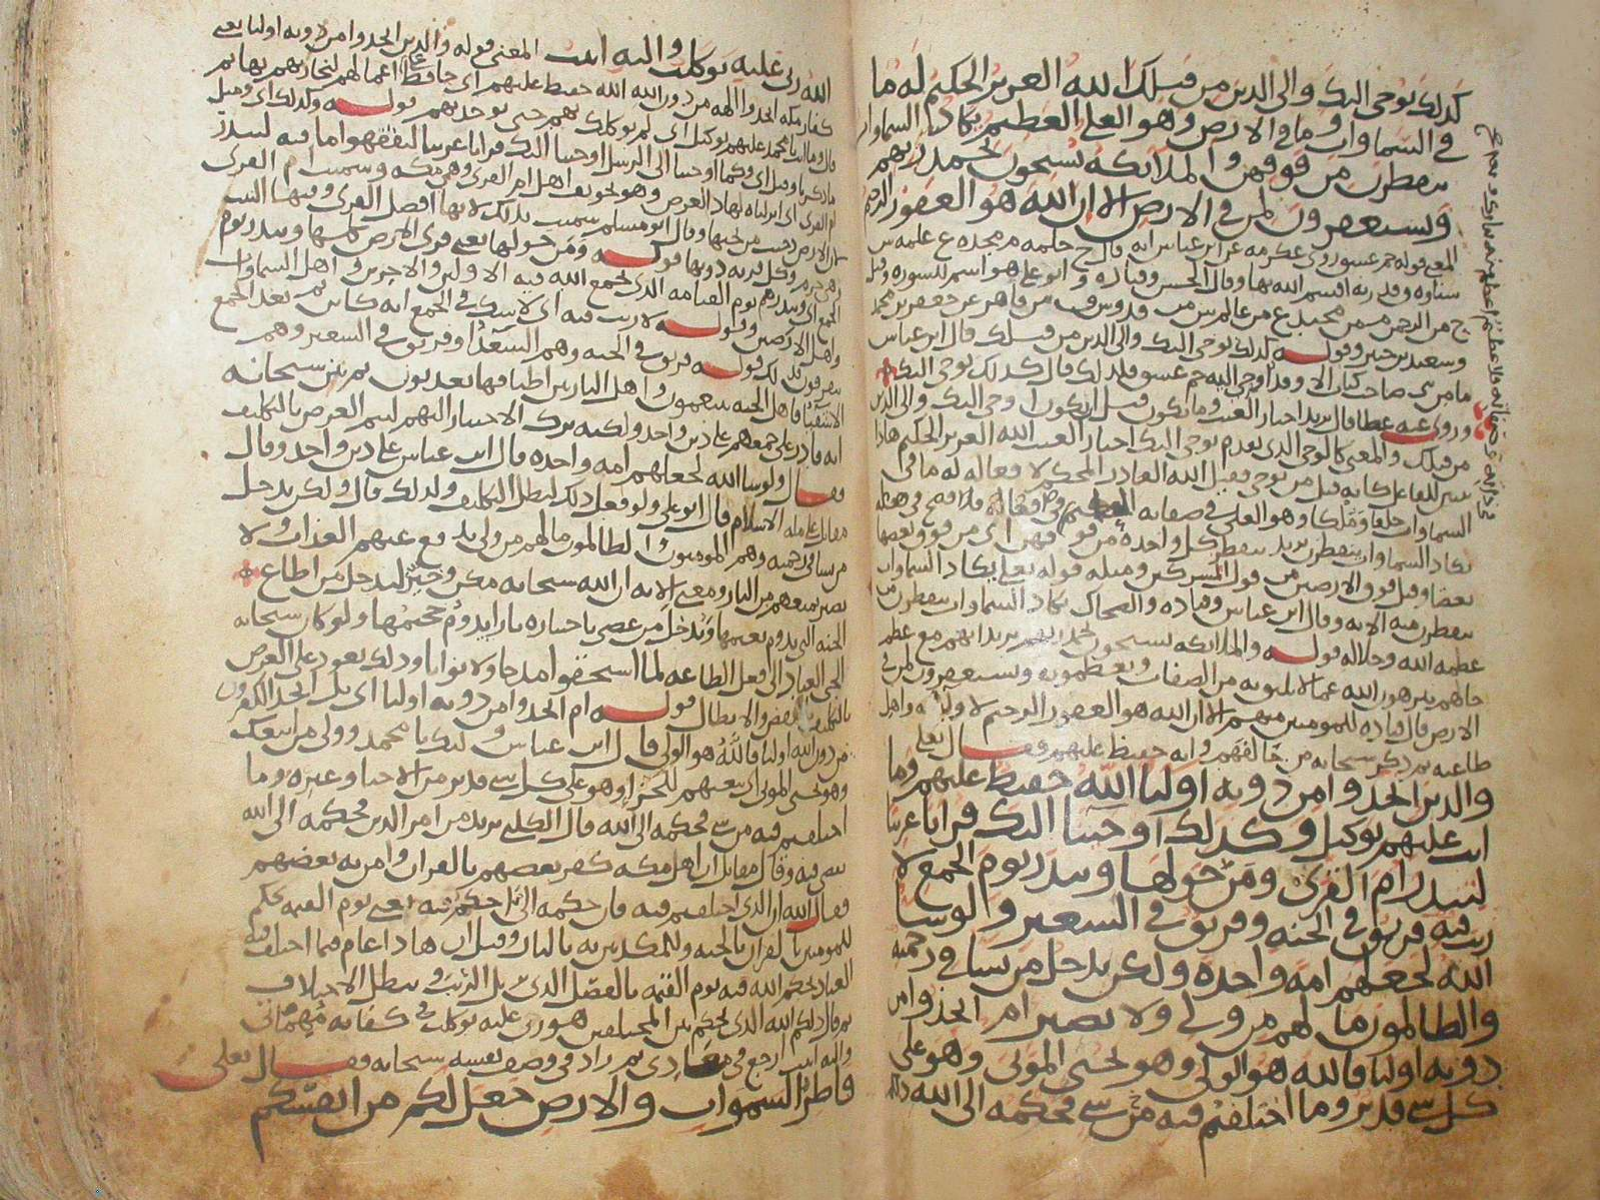 كذلك يوحى اليك والى الذين من قبلك الله العزيز الحكيم له ما
في السماوات وما في الارض وهو العلي العظيم يكاد السماوات
يتفطرن من فوقهن والملائكة يسبحون بحمد ربهم
ويستغفرون لمن في الارض الا ان الله هو الغفور الرحيم
المعنى قوله حم عسق روى عكرمه عن ابن عباس انه قال ح حلمه م مجده ع علمه س
سناوه ق قدرته اقسم الله بها وقال الحسن وقتاده وابو علي هو اسم للسوره وقيل
وسعيد بن جبير وقوله كذلك يوحى اليك والى الذين من قبلك قال ابن عباس
ما من نبي صاحب كتاب الا وقد اوحى اليه حم عسق فلذلك قال كذلك يوحى اليك
وروى عنه عطا قال يريد اخبار الغيب وما يكون قبل ان يكون اوحى اليك والى الذين
من قبلك والمعنى كالوحى الذى تقدم يوحى اليك اخبار الغيب الله العزيز الحكيم هاذا
السماوات خلقا وملكا وهو العلي في صفاته العظيم في
تكاد السماوات يتفطرن يريد يتفطر كل واحده من فوقهن اى من فوق بعضها
بعضا وقيل فوق الارضين من قول المشركين ومثله قوله تعلى يكاد السماوات
يتفطرن منه الايه وقال ابن عباس وقتاده والضحاك تكاد السماوات يتفطرن من
عظمه الله وجلاله قوله والملائكه يسبحون بحمد ربهم يريد انهم مع عظم
حالهم ينزهون الله عما لا يليق به من الصفات ويعظمونه ويستغفرون لمن في
الارض قال قتاده للمومنين منهم الا ان الله هو الغفور الرحيم لاوليائه واهل
طاعته ثم ذكر سبحانه من خالفهم وانه حفيظ عليهم فقال تعلى
والذين اتخذوا من دونه اوليا الله حفيظ عليهم وما
انت عليهم بوكيل وكذلك اوحينا اليك قرانا عربيا
لتنذر ام القرى ومن حولها وتنذر يوم الجمع لا
ريب فيه فريق في الجنه وفريق في السعير ولو شا
الله لجعلهم امه واحده ولكن يدخل من يشا في رحمته
والظالمون ما لهم من ولي ولا نصير ام اتخذوا من
دونه اوليا فالله هو الولي وهو يحيى الموتى وهو على
كل شي قدير وما اختلفتم فيه من شي فحكمه الى الله ذلكم
الله ربى عليه توكلت واليه انيب المعنى قوله والذين اتخذوا من دونه اوليا يعنى
كفار مكه اتخذوا الهه من دون الله الله حفيظ عليهم اى حافظ اعمالهم ليجازيهم بها ثم
قال وما انت يا محمد عليهم بوكيل اى لم نوكلك بهم حتى توخذ بهم قوله وكذلك اى ومثل
ما ذكرنا وقيل اى وكما اوحينا الى الرسل اوحينا اليك قرانا عربيا ليفقهوا ما فيه لتنذر
ام القرى اى انزلناه لهاذا الغرض وهو تخويف اهل ام القرى وهى مكه وسميت ام القرى
لان الارض دحيت من تحتها وقال ابو مسلم سميت بذلك لانها افضل القرى وفيها البيت
قوله ومن حولها يعنى قرى الارض كلها وتنذر يوم
الجمع اى وتنذرهم يوم القيامه الذى يجمع الله فيه الاولين والاخرين واهل السماوات
واهل الارضين وقوله لا ريب فيه اى لا شك في الجمع انه كائن ثم بعد الجمع
يتفرقون فذلك قوله فريق في الجنه وهم السعدا وفريق في السعير وهم
الاشقيا فاهل الجنه ينعمون واهل النار بين اطباقها يعذبون ثم بين سبحانه
انه قادر على جمعهم على دين واحد ولكنه ترك الاجبار اليهم ليتم الغرض بالتكليف
فقال ولو شا الله لجعلهم امه واحده قال ابن عباس على دين واحد وقال
مقاتل على مله الاسلام قال ابو علي ولو فعل ذلك لبطل التكليف ولذلك قال ولكن يدخل
من يشا في رحمته وهم المومنون والظالمون ما لهم من ولي يدفع عنهم العذاب ولا
نصير يمنعهم من النار ومعنى الايه ان الله سبحانه مكن وخير ليدخل من اطاع
الجنه التى يدوم نعيمها ويدخل من عصى باختياره نارا يدوم جحيمها ولو كان سبحانه
الجى العباد الى فعل الطاعه لما استحقوا مدحا ولا ثوابا وذلك يعود على الغرض
بالتكليف بالنقض والابطال قوله ام اتخذوا من دونه اوليا اى بل اتخذ الكافرون
من دون الله اوليا فالله هو الولى قال ابن عباس وليك يا محمد وولى من اتبعك
وهو يحيى الموتى اى يبعثهم للجزا وهو على كل شي قدير من الاحيا وغيره وما
اختلفتم فيه من شي فحكمه الى الله قال الكلبى يريد من امر الدين فحكمه الى الله
يقضى فيه وقال مقاتل ان اهل مكه كفر بعضهم بالقران وامن به بعضهم
فقال الله ان الذى اختلفتم فيه فان حكمه الى احكم فيه يعنى يوم القيمه يحكم
للمومنين بالقران بالجنه وللمكذبين به بالنار وقيل ان هاذا عام فيما اختلف فيه
العباد يحكم الله فيه يوم القيمه بالفصل الذى يزيل الريب ويبطل الاختلاف
ثم قال ذلكم الله الذى يحكم بين المختلفين هو ربى عليه توكلت في كفايه مهماتى
واليه انيب ارجع في معادى ثم زاد في وصف نفسه سبحانه فقال تعلى
فاطر السموات والارض جعل لكم من انفسكم